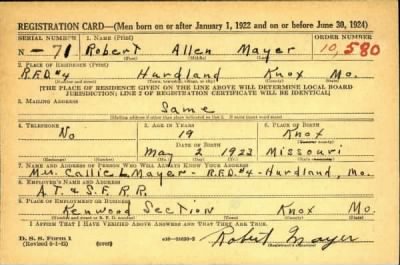 REGISTRATION CARD—(Men born on or after January 1, 1922 and on or before June 30, 1924)
SERIAL NUMBER 1. NAME (Print) ORDER NUMBER
N - 71 Robert Allen Mayer 10,580
(First) (Middle) (Last)
2. PLACE OF RESIDENCE (Print)
R.F.D. #4 Hurdland Knox Mo.
(Number and street) (Town, township, village, or city) (County) (State)
[THE PLACE OF RESIDENCE GIVEN ON THE LINE ABOVE WILL DETERMINE LOCAL BOARD
JURISDICTION; LINE 2 OF REGISTRATION CERTIFICATE WILL BE IDENTICAL]
3. MAILING ADDRESS
Same
(Mailing address if other than place indicated on line 2. If same insert word same)
4. TELEPHONE 5. AGE IN YEARS 6. PLACE OF BIRTH
No 19 Knox
DATE OF BIRTH
May 2 1922 Missouri
7. NAME AND ADDRESS OF PERSON WHO WILL ALWAYS KNOW YOUR ADDRESS
Mrs. Callie L Mayer - R.F.D. #4 - Hurdland, Mo.
8. EMPLOYER'S NAME AND ADDRESS
A. T. & S. F. R. R.
9. PLACE OF EMPLOYMENT OR BUSINESS
Kenwood Section Knox Mo.
I AFFIRM THAT I HAVE VERIFIED ABOVE ANSWERS AND THAT THEY ARE TRUE.
D. S. S. Form 1
(Revised 6-1-42) (over)
Robert Mayer